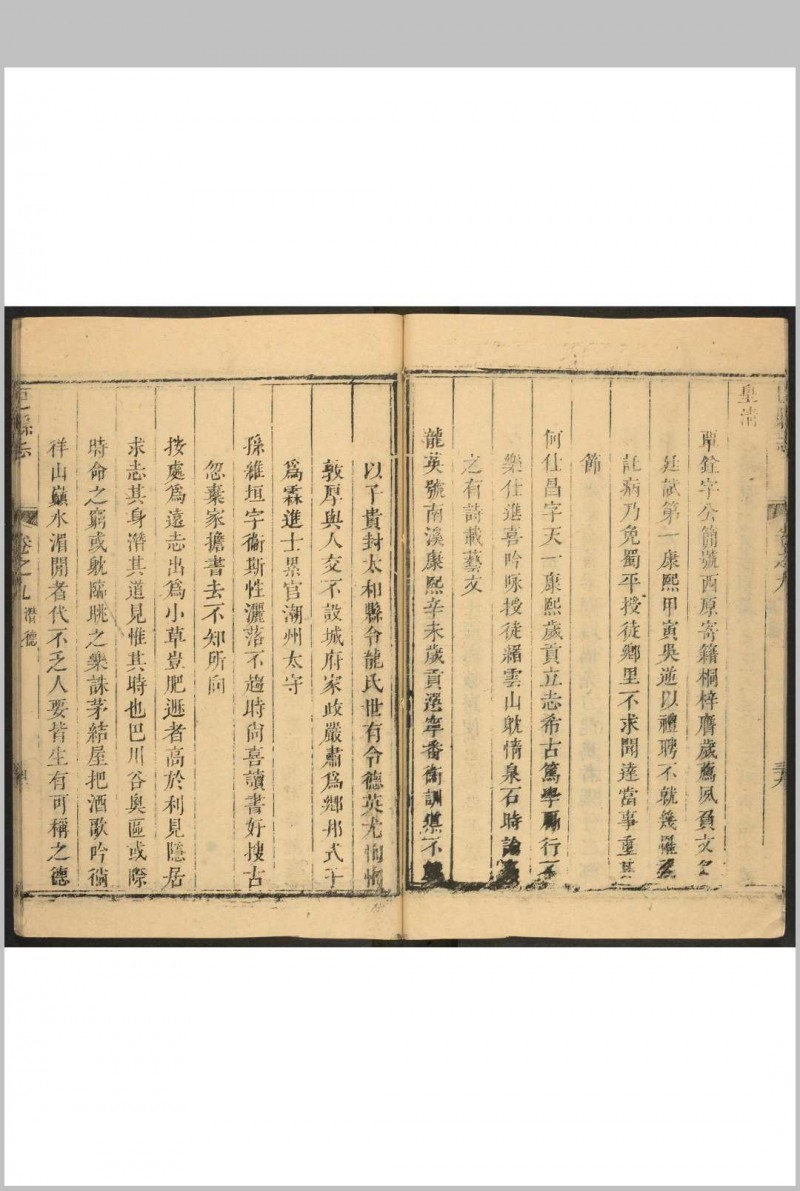 巴縣志
卷之九
皇清
覃銓字公簡號西原寄籍桐梓膺歲薦夙負文名
廷試第一康熙甲寅吳逆以禮聘不就幾罹
託病乃免蜀平授徒鄉里不求聞達當事重其
節
何仕昌字天一康熙歲貢立志希古篤學勵行不
樂仕進喜吟咏授徒縉雲山躭情泉石時論
之有詩載藝文
龍英號南溪康熙辛未歲貢選寧番衛訓導不
以子貴封太和縣令龍氏世有令德英尤恂恂
敦厚與人交不設城府家政嚴肅爲鄉邦式子
爲霖進士累官潮州太守
孫維垣字衞斯性灑落不趨時尙喜讀書好搜古
忽棄家擔書去不知所向
按處爲遠志出爲小草豈肥遯者高於利見隱居
求志其身潛其道見惟其時也巴川谷奧區或際
時命之窮或躭臨眺之樂誅茅結屋把酒歌吟徜
徉山巔水湄閒者代不乏人要皆生有可稱之德
巴縣志
卷之九 潛德